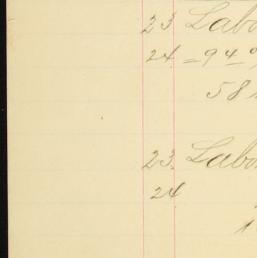 23 Labo
24 - 94
58
23 Labo
24